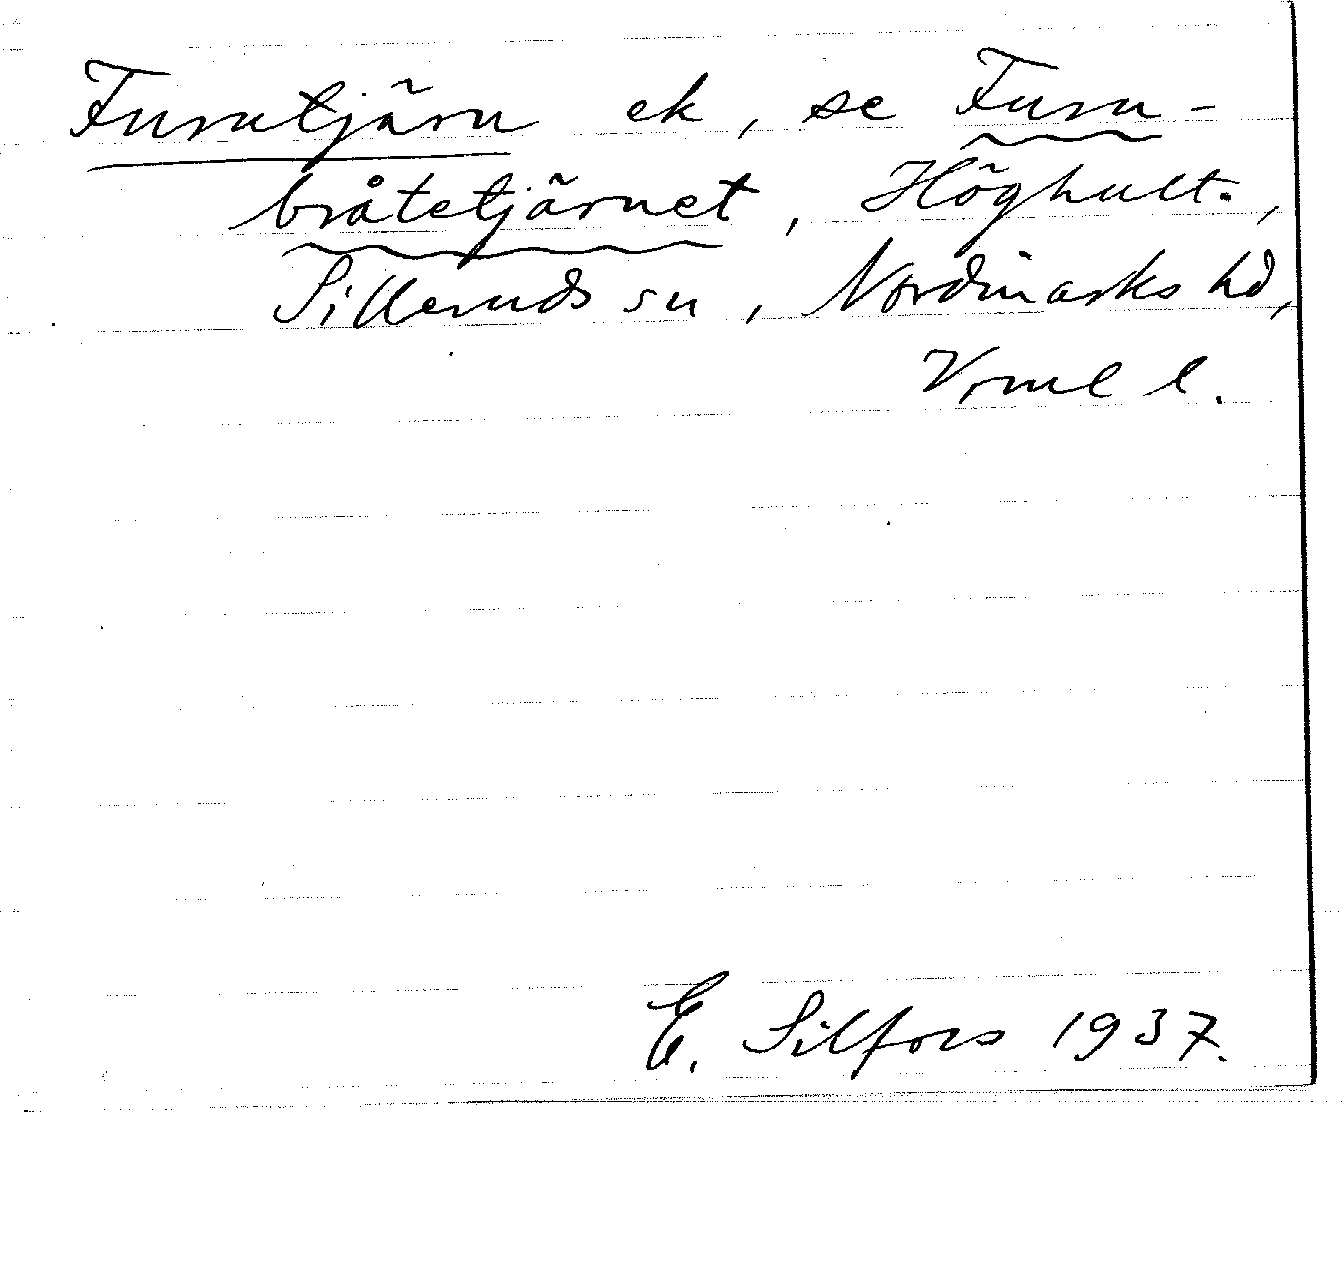 Furutjärn ek, se Furu-
bråtetjärnet, Höghult.,
Silleruds sn, Nordmarks hd,
Vrml l.
E. Silfors 1937.